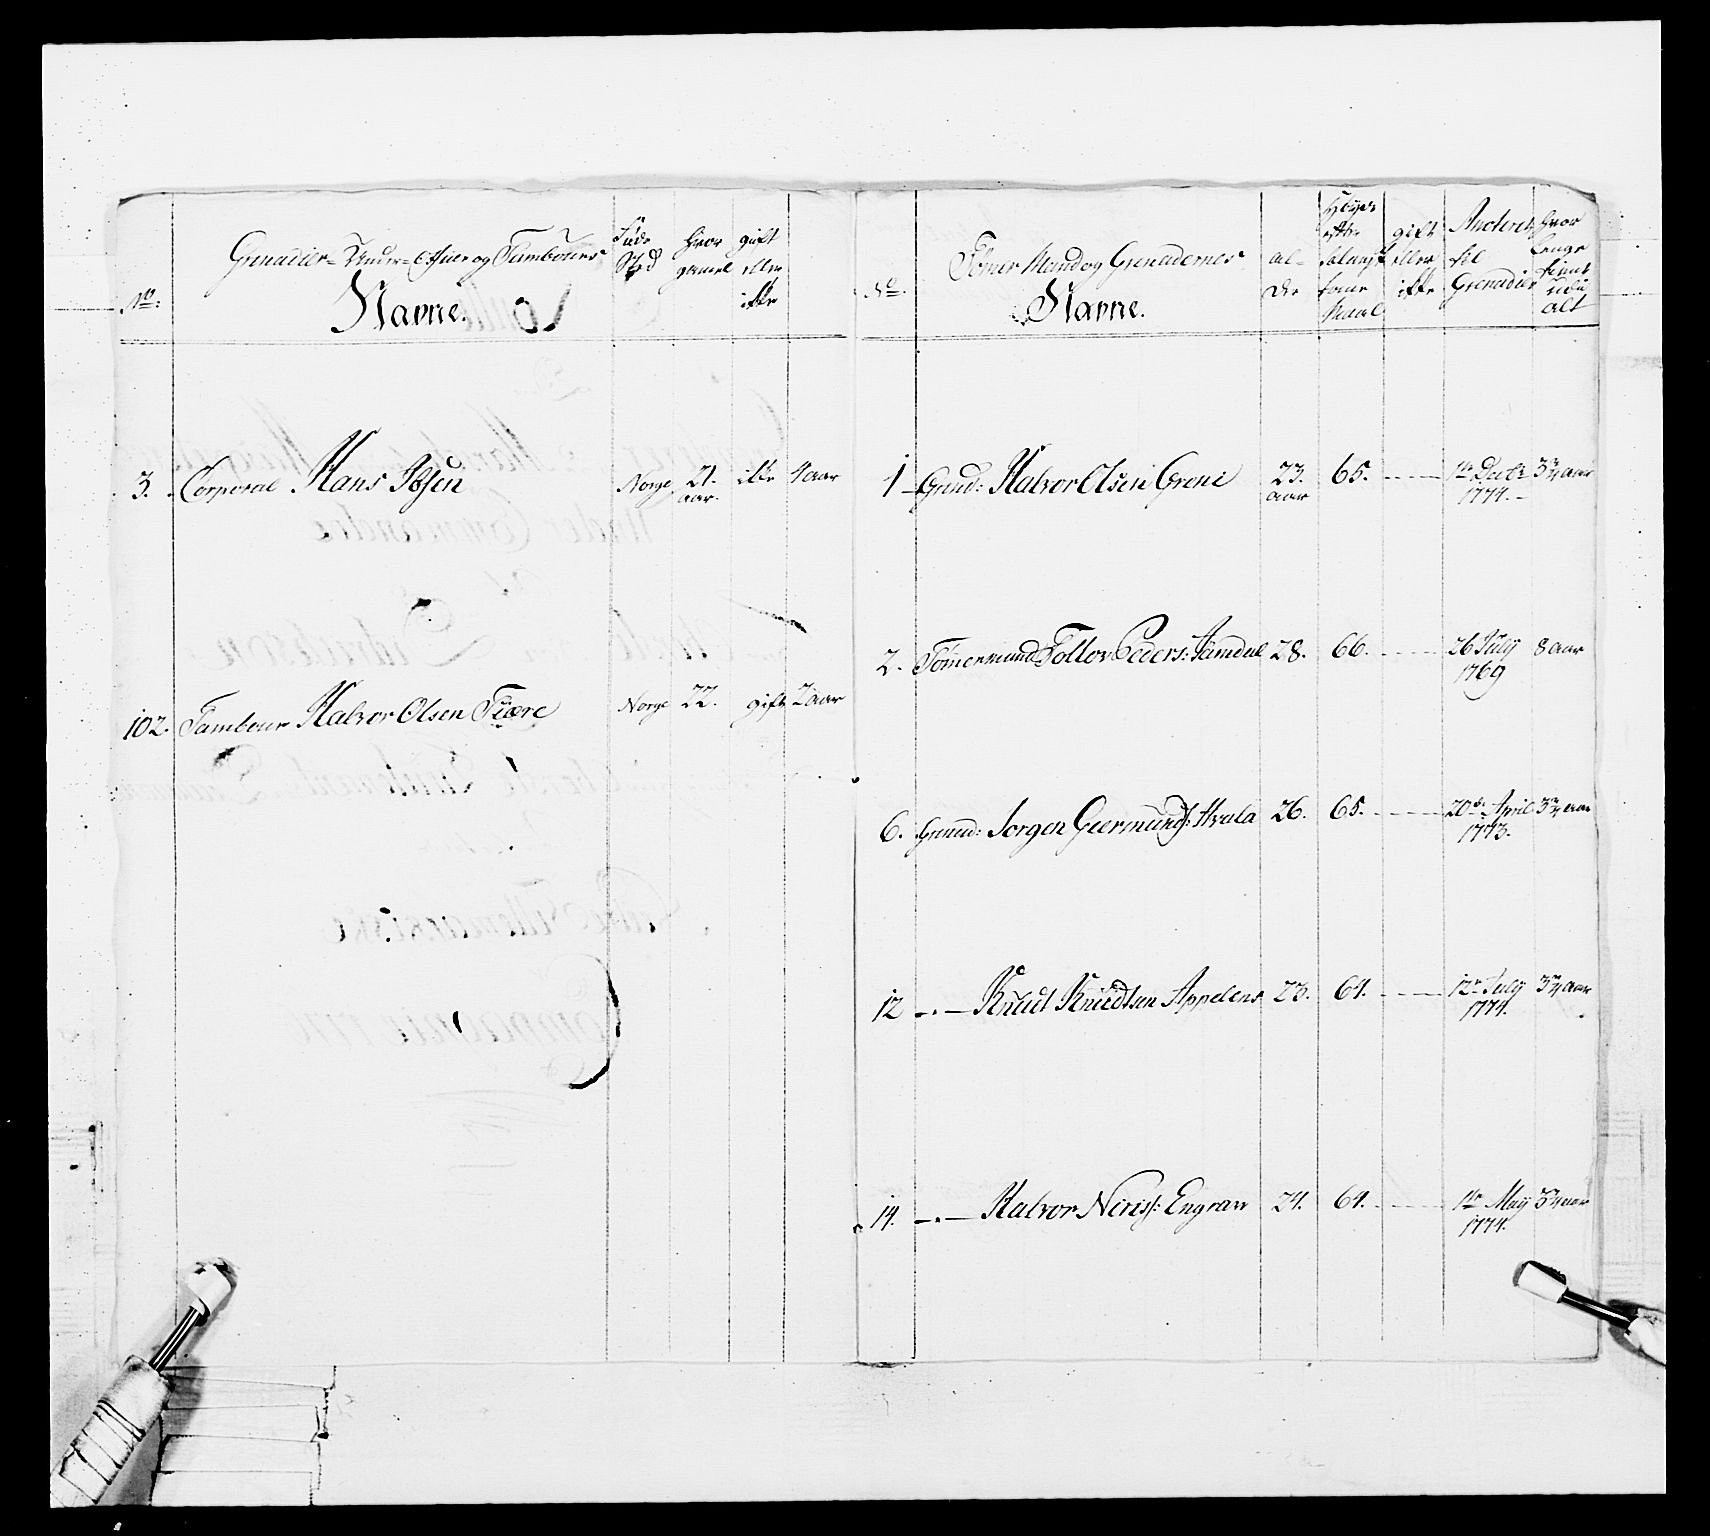 No:
Grenadier-Under-Officier og Tambours
Navne.
Føde Sted
hvor gamel
gift eller ikke
3. Corporal Hans Ibsen Norge 21. aar. ikke 4 aar
102. Tambour Halvor Olsen Fiære Norge 22. gift 2 aar
No.
Tømer Mand og Grenadernes
Navne.
al-der
Høyde efter Maal
gift eller ikke
til Grenadier
hvor lenge tient udi alt
1 Grend: Halvor Olsen Greni 23. aar 65. 1te 1774. 3 3/4 aar
2. Tømermand Tollov Peders: Aamdal 28. 66. 26 July 1769 8 aar
6. Grenad: Jorgen Giermunds: Hvala 26. 65. 20de April 1773. 3 3/4 aar
12 Knudt Knudtsen Appelens 23. 64. 12te July 1774. 3 3/4 aar
14. Halvor Neriss: Engrav 24. 64. 1te May 1774. 3 3/4 aar